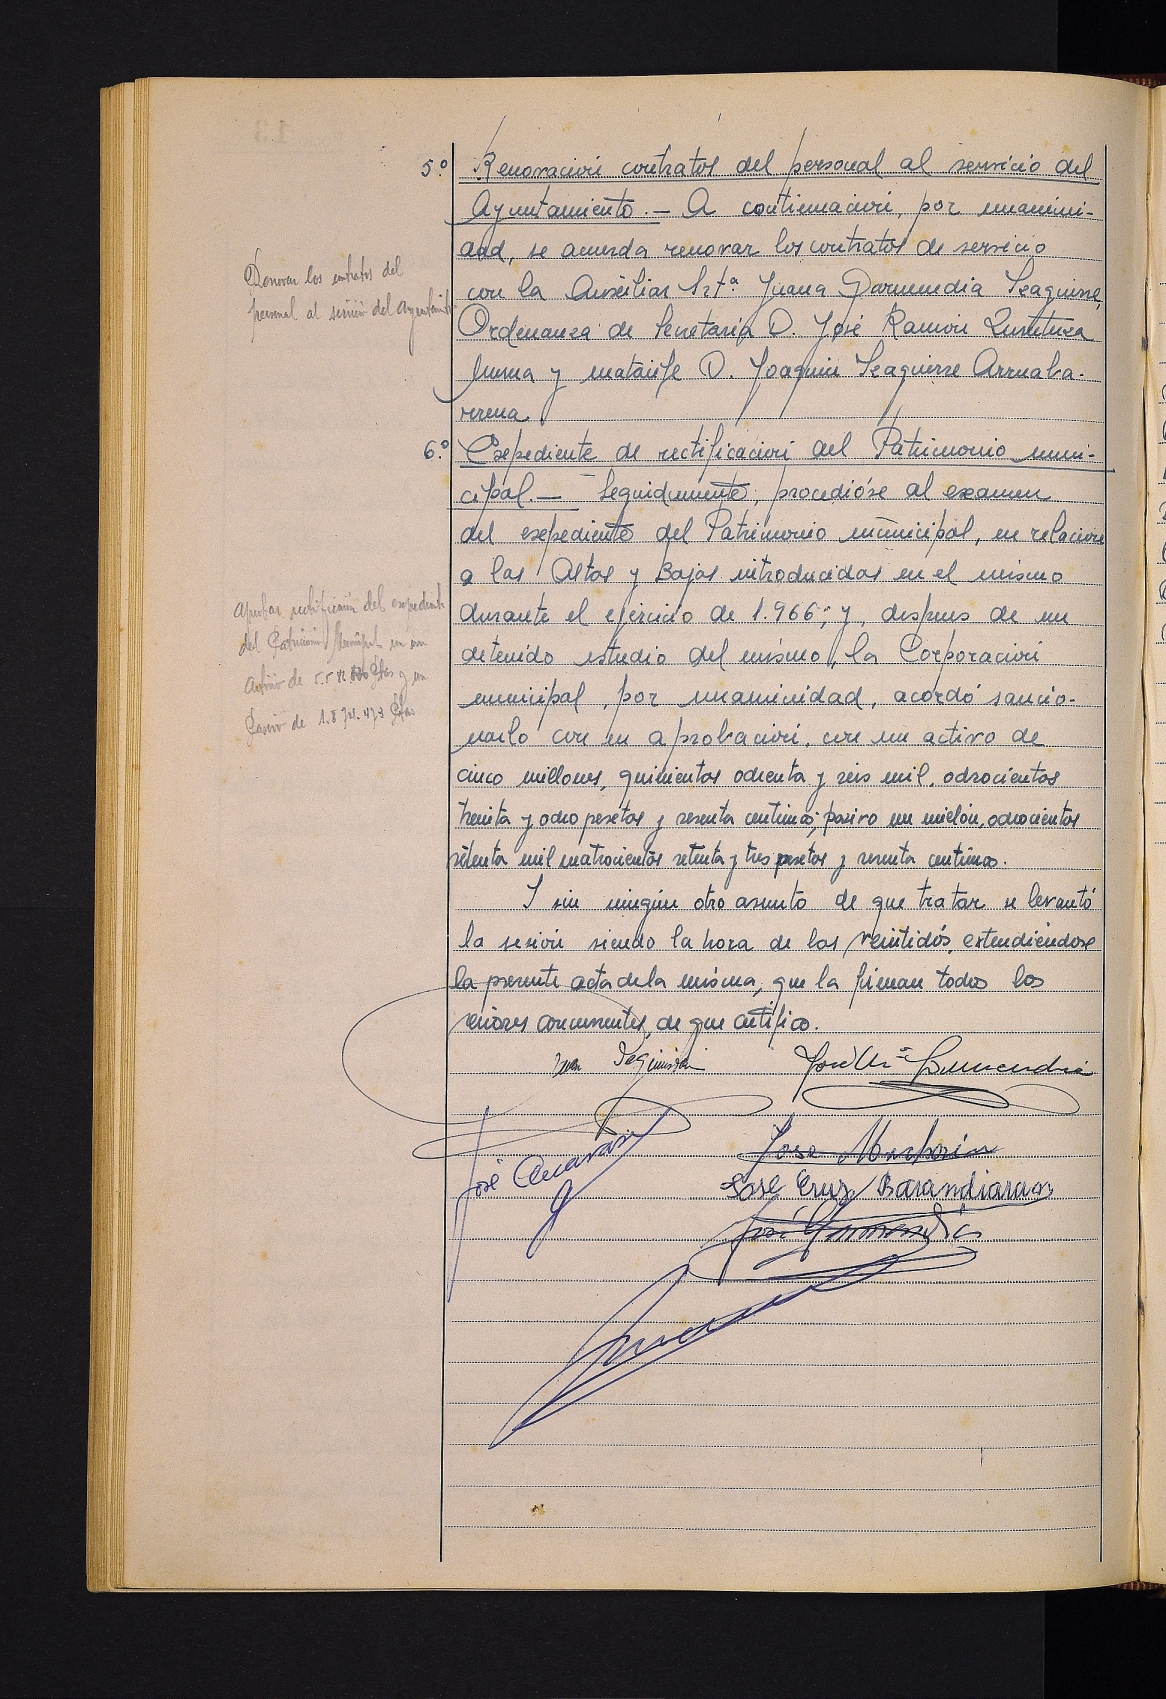 5.º Renovación contratos del personal al servicio del
Ayuntamiento.- A continuación, por unanimi-
dad, se acuerda renovar los contratos de servicio
con la Auxiliar Srtª Juana Garmendia Izaguirre,
Ordenanza de Secretaría D. José Ramón
y matarife D. Joaquín Izaguirre Arruaba-
rrena.
Renovar los contratos del
personal al servicio del Ayuntamiento
6.º Expediente de rectificación del Patrimonio muni-
cipal.- Seguidamente, procedióse al examen
del expediente del Patrimonio municipal, en relación
a las Altas y Bajas introducidas en el mismo
durante el ejercicio de 1.966; y, despues de un
detenido estudio del mismo, la Corporación
municipal, por unanimidad, acordó sancio-
narlo con su aprobación, con un activo de
cinco millones, quinientas ochenta y seis mil, ochocientas
treinta y ocho pesetas y sesenta centimos; pasivo un millón, ochocientas
setenta mil cuatrocientas setenta y tres pesetas y sesenta centimos.
Aprobar rectificación del expediente
del Patrimonio Municipal con un
activo de Ptas y un
pasivo de 1.870.473 Ptas
Y sin ningún otro asunto de que tratar se levantó
la sesión siendo la hora de las veintidós, extendiéndose
la presente acta de la misma, que la firman todos los
señores concurrentes, de que certifico.
José Mª Garmendia
José
Jose
José Cruz Barandiaran
José Garmendia